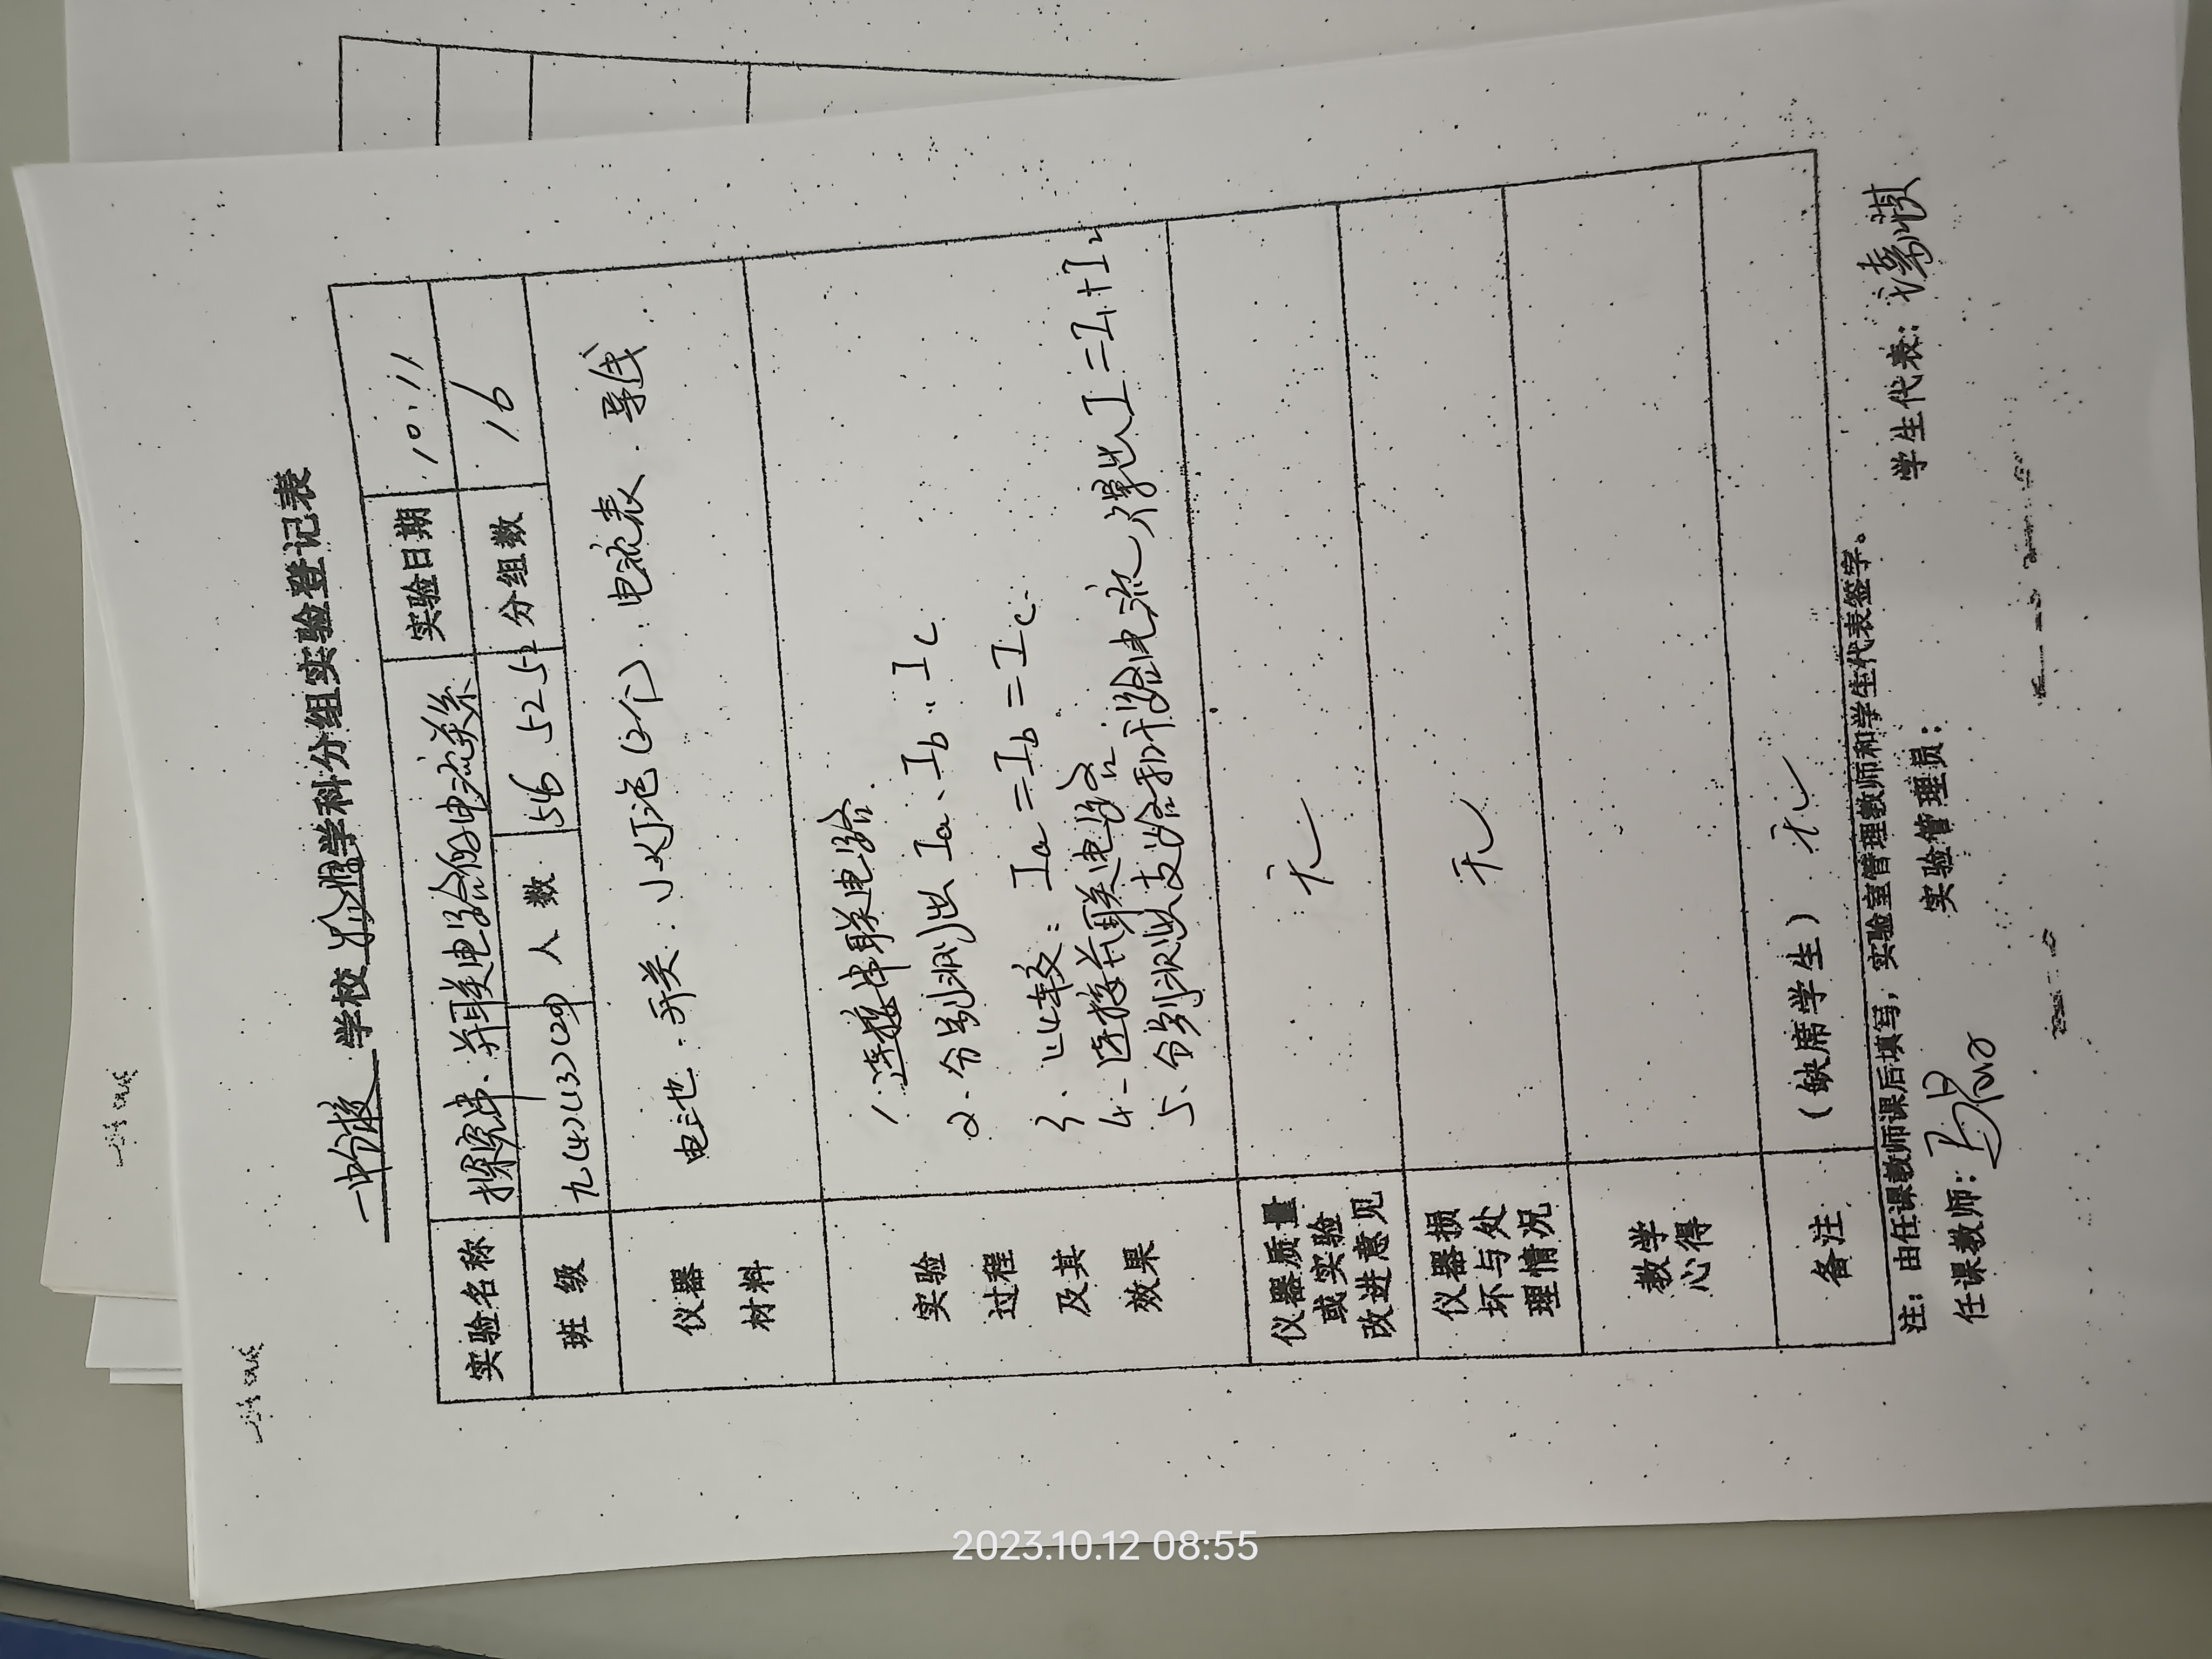 一中分校 学校 物理 学科分组实验登记表
实验名称 探究串、并联电路的电流关系 实验日期 10.11
班 级 九(4)(13)(20) 人 数 56 52 52 分组数 16
仪器 材料 电池. 开关. 小灯泡(2个). 电流表. 导线
实验 过程 及其 效果
1.连接串联电路.
2.分别测出 Ia、Ib、Ic
3、比较: Ia=Ib=Ic.
4.连接并联电路
5、分别测出支路和干路电流,得出I=I₁+I₂
仪器质量 或实验 改进意见 无
仪器损 坏与处 理情况 无
教学 心得
备注 (缺席学生) 无
注:由任课教师课后填写,实验室管理教师和学生代表签字。
任课教师: 实验管理员: 学生代表:
2023.10.12 08:55